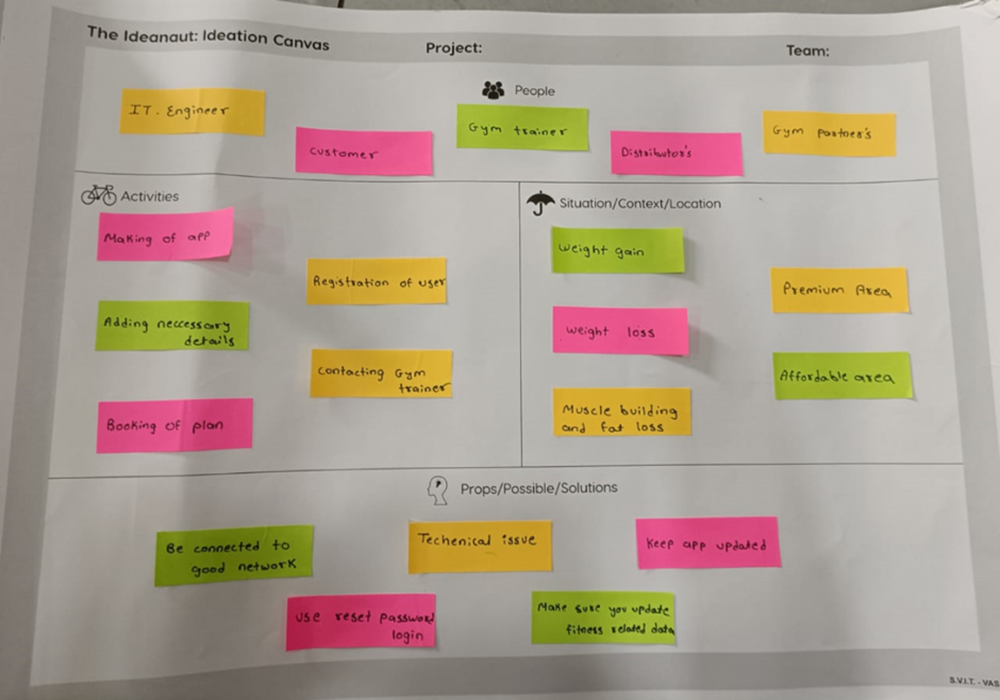 The Ideanaut: Ideation Canvas
Project:
Team:
People
IT. Engineer
Customer
Gym trainer
Distributor's
Gym partner's
Activities
Making of app
Registration of user
Adding neccessary
details
Contacting Gym
trainer
Booking of plan
Situation/Context/Location
Weight gain
Premium Area
Weight loss
Affordable area
Muscle building
and fat loss
Props/Possible/Solutions
Be connected to
good network
Techenical issue
Keep app updated
Use reset password
login
Make sure you update
fitness related data
S.V.I.T. - VAS